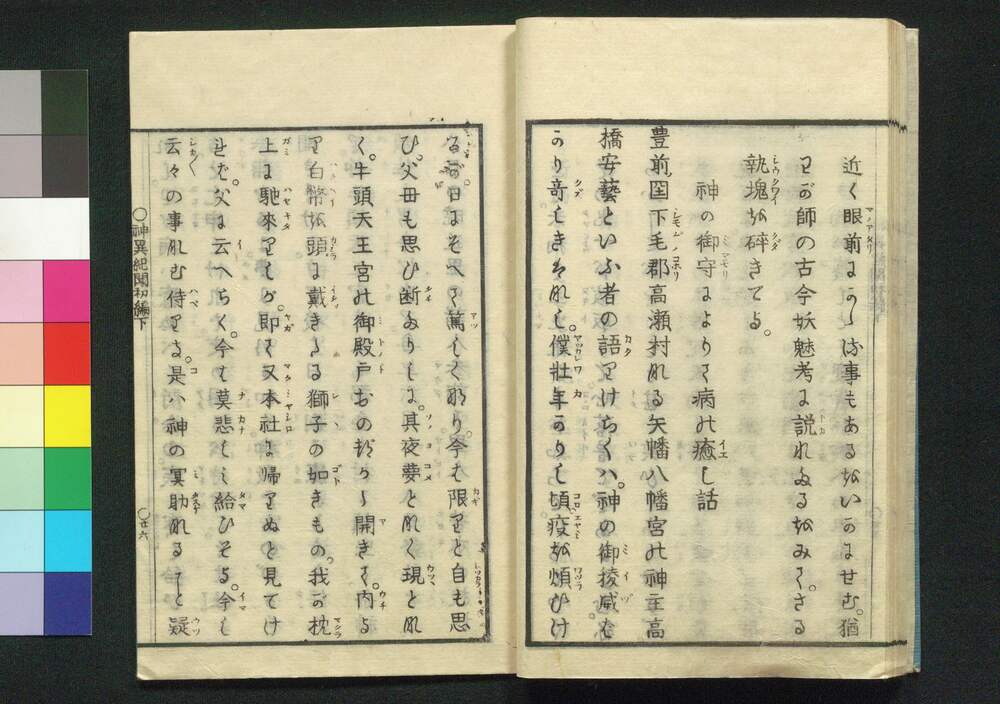 近く眼前にかゝる事もあるをいかにせむ。猶
わが師の古今妖魅考に説れたるをみて。さる
執塊を碎きてよ。
神の御守によりて病の癒し話
豊前國下毛郡高瀬村なる矢幡八幡宮の神主高
橋安藝といふ者の語りけらくハ。神の御稜威ば
かり奇しきはなし。僕壮年かりし頃疫を煩ひけ
るが日にそへて篤しくなり今は限りと自も思
ひ。父母も思ひ断たりしに。其夜夢となく現とな
く。牛頭天王宮の御殿戸おのづから開きて。内よ
り白幣を頭に戴きたる獅子の如きもの。我が枕
上に馳來りしが。即て又本社に帰りぬと見てけ
れば。父に云へらく。今は莫悲しみ給ひそよ。今し
云々の事なむ侍りき。是ハ神の冥助なること疑
○神異紀聞初編下
○廿六